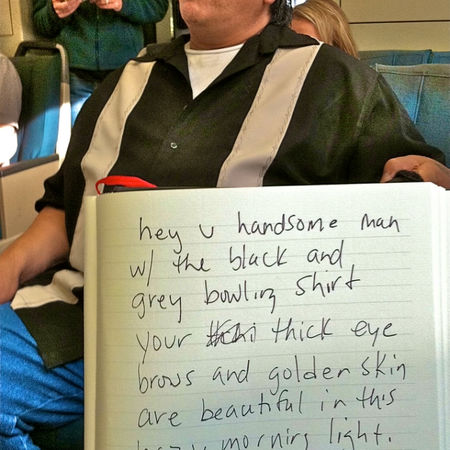 hey u handsome man
w/ the black and
grey bowling shirt
your thick eye
brows and golden skin
are beautiful in this
morning light.